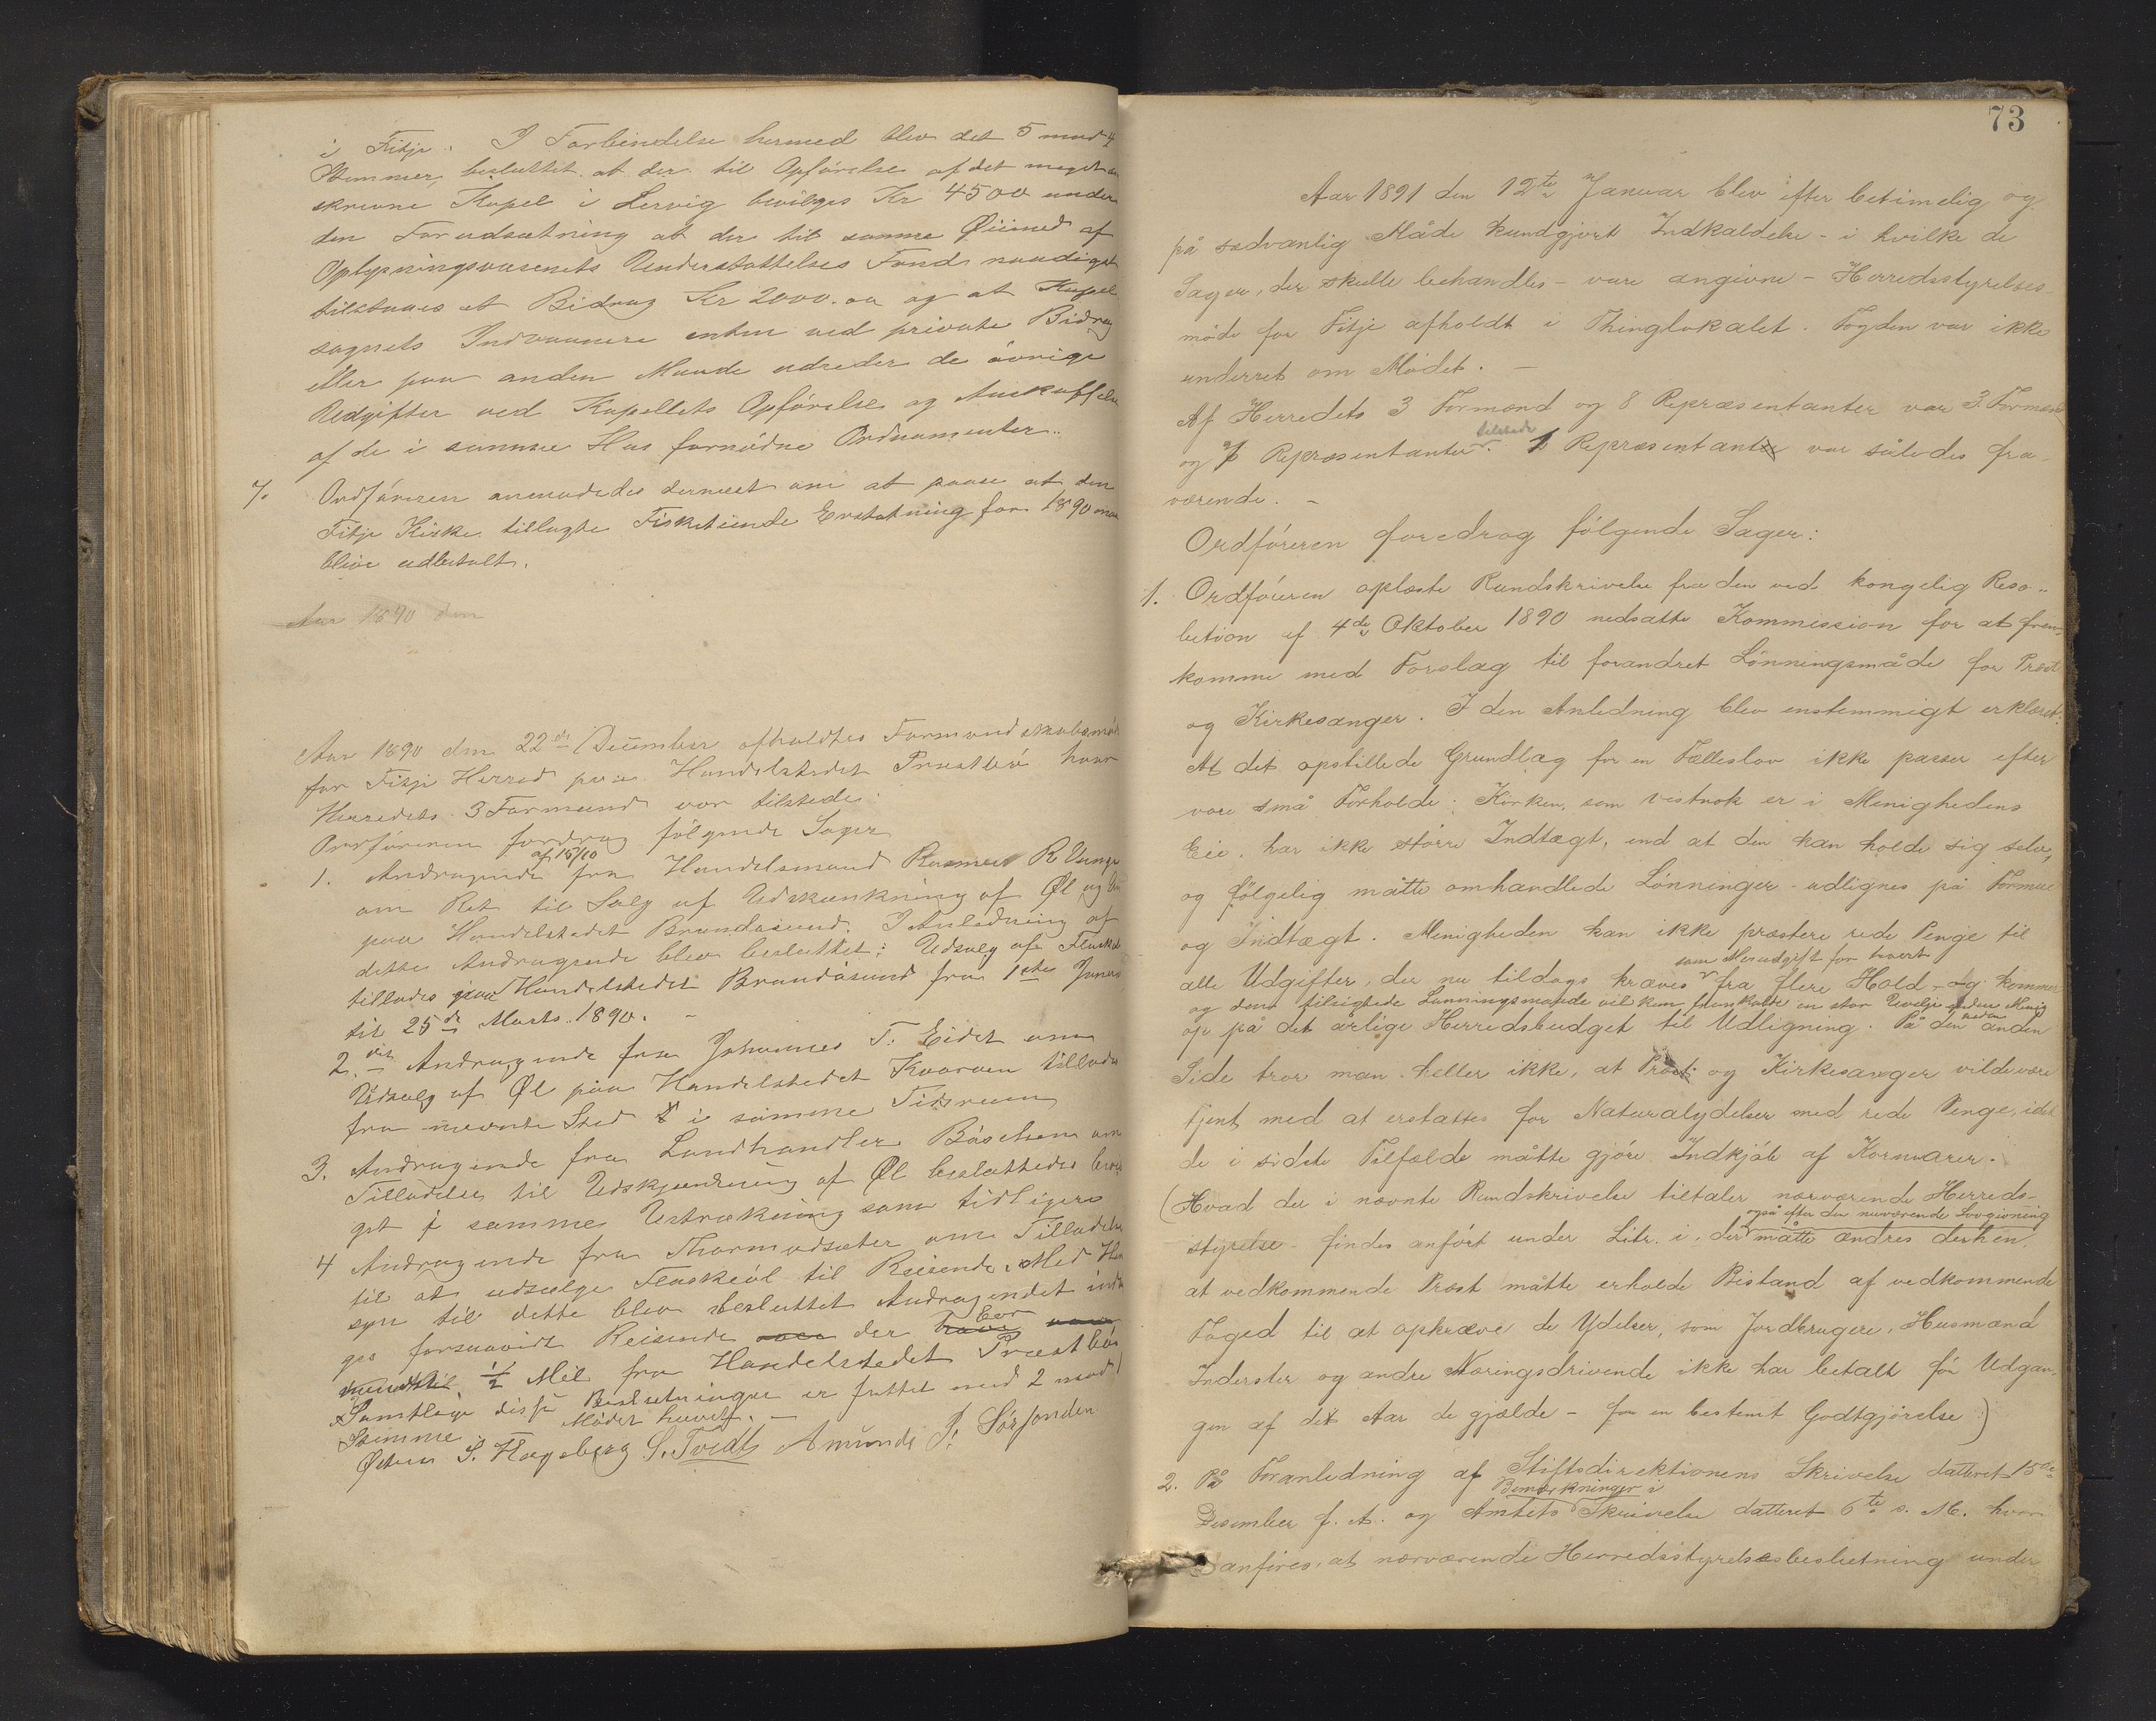 i Fitje. I Forbindelse hermed blev det 5 mod 4
Stemmer, besluttet at der til Opførelse af det meget
skrevne Kapel i Lervig bevilges Kr 4500 under
den Forudsætning at der til samme Øiemed af
Oplysningsvæsenets Understøttelses Fond naadigst
tilstaaes et Bidrag Kr 2000.00 og at Kapel
sognets Indvaanere enten ved private Bidrag
eller paa anden Maade udreder de øvrige
Udgifter ved Kapellets Opførelse og Anskaffelse
af de i samme Hus fornødne Ordnamenter.
7. Ordføreren anmodedes dernæst om at paase at den
Fitje Kirke tillagte Fisketiende Erstatning for 1890 maa
blive udbetalt.
Aar 1890 den
Aar 1890 den 22de December afholdtes Formandskabsmøde
for Fitje Herred paa Handelstedet Præstbø hvor
Herredets 3 Formænd var tilstede.
Ordføreren fordrog følgende Sager
1. Andragende af 15/10 fra Handelsmand Rasmus R
om Ret til Salg af Udskænkning af Øl og
paa Handelstedet Brandasund. I Anledning af
dette Andragende blev besluttet: Udsalg af
tillades paa Handelstedet Brandåsund fra 1ste Januar
til 25de Marts 1890. –
2det Andragende fra Johannes T. Eidet om
Udsalg af Øl paa Handelstedet Kvarven tillades
fra nævnte Sted i samme Tidsrum
3. Andragende fra Landhandler Båsehen om
Tilladelse til Udskjænkning af Øl besluttedes bevil
get i samme Ustrækning som tidligere
4 Andragende fra Thormodsæter om Tilladelse
til at udsælge Flaskeøl til Reisende. Med Hen
syn til dette blev besluttet Andragendet indvil
ges forsaavidt Reisende der bor
1/2 Mil fra Handelstedet Præstbø
Samtlige disse Beslutninger er fattet med 2 mod 1
Stemme. Mødet hævet. –
Østen S. Hageberg S. Tvedt Amunds J. Sørfonden
73
Aar 1891 den 12te Januar blev efter betimelig og
på sedvanlig Måde kundgjort Indkaldelse – i hvilke de
Sager, der skulle behandles – vare angivne – Herredsstyrelses
møde for Fitje afholdt i Thinglokalet. Fogden var ikke
underret om Mødet. –
Af Herredets 3 Formænd og 8 Repræsentanter var 3 Formænd
og 7 Repræsentanter tilstede. 1 Repræsentant var således fra
værende. –
Ordføreren foredrog følgende Sager:
1. Ordføreren oplæste Rundskrivelse fra den ved kongelig Reso-
lution af 4de Oktober 1890 nedsatte Kommission for at frem
komme med Forslag til forandret Lønningsmåde for Præst
og Kirkesanger. I den Anledning blev enstemmigt erklæret:
At det opstillede Grundlag for en Fælleslov ikke passer efter
vore små Forholde: Kirken, som vistnok er i Menighedens
Eie, har ikke større Indtægt, end at den kan holde sig selv,
og følgelig måtte omhandlede Lønninger udlignes på Formue
og Indtægt. Menigheden kan ikke præstere rede Penge til
alle Udgifter, der nu tildags kræves som Merudgift for hvert fra flere Hold – og kommer
og den tilsigtede Lønningsmaade vil kun fremkalde en stor Uvilje inden Menig
heden
op på det årlige Herredsbudget til Udligning. På den anden
Side tror man heller ikke, at Præst og Kirkesanger vilde være
tjent med at erstattes for Naturalydelser med rede Penge, idet
de i sidste Tilfælde måtte gjøre Indkjøb af Kornvarer.
(Hvad der i nævnte Rundskrivelse tiltaler nærværende Herreds-
styrelse findes anført under Litr. i, der også efter den nuværende Lovgivning måtte ændres derhen,
at vedkommende Præst måtte erholde Bistand af vedkommende
Foged til at opkræve de Ydelser, som Jordbrugere, Husmænd
Inderster og andre Næringsdrivende ikke har betalt før Udgan
gen af det Aar de gjælde – for en bestemt Godtgjørelse)
2. På Foranledning af Stiftsdirektionens Skrivelse datteret 15de
Desember f. A. og Amtets Bemærkninger i Skrivelse datteret 6te s. M. hvor
anføres, at nærværende Herredsstyrelsesbeslutning under